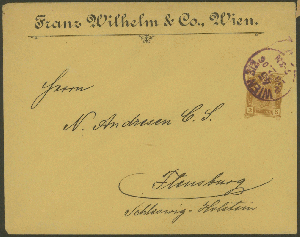 Franz Wilhelm & Co., Wien.
WIEN
Herrn
N. Andresen C. S.
Flensburg
Schleswig-Holstein